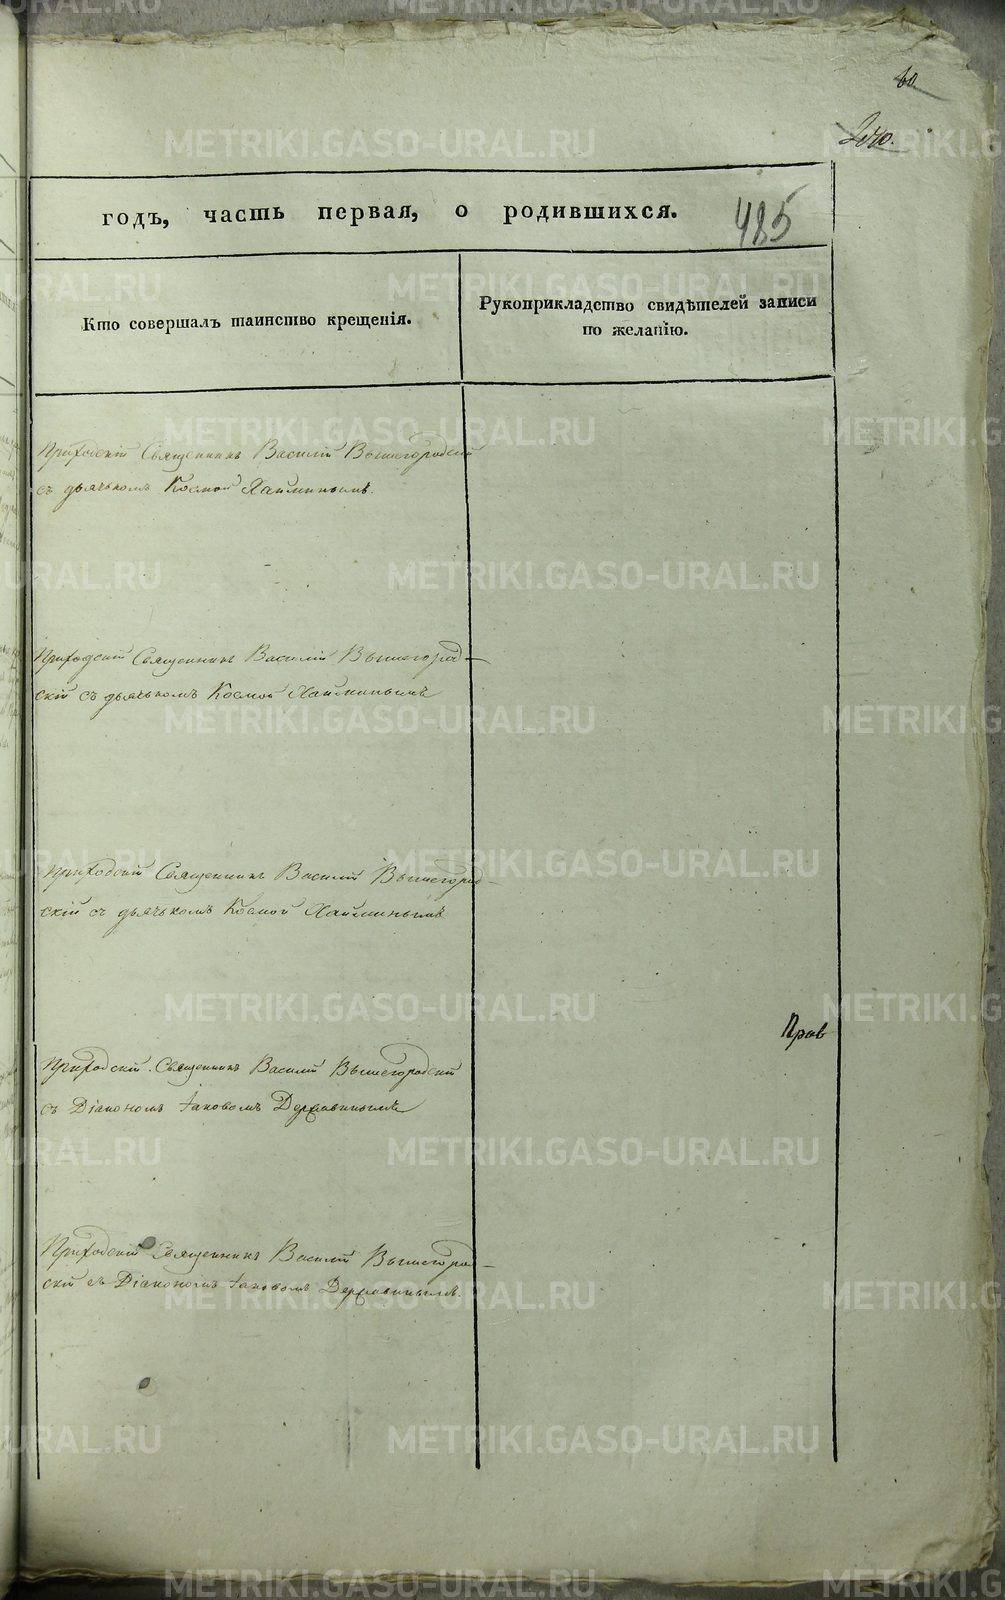 60
годъ, часть первая, о родившихся.
485
Кто совершалъ таинство крещенія.
Рукоприкладство свидѣтелей записи
по желанію.
Приходскій Священникъ Василій Вышегородскій
съ дьячькомъ Космой Хайминымъ.
Приходскій Священникъ Василій Вышегород-
скій съ дьячькомъ Космой Хайминымъ
Приходскій Священникъ Василій Вышегород-
скій съ дьячькомъ Космой Хайминымъ
Прав
Приходскій Священникъ Василій Вышегородскій
съ Діакономъ Іаковомъ Державинымъ
Приходскій Священникъ Василій Вышегород-
скій съ Діакономъ Іаковомъ Державинымъ.
METRIKI.GASO-URAL.RU